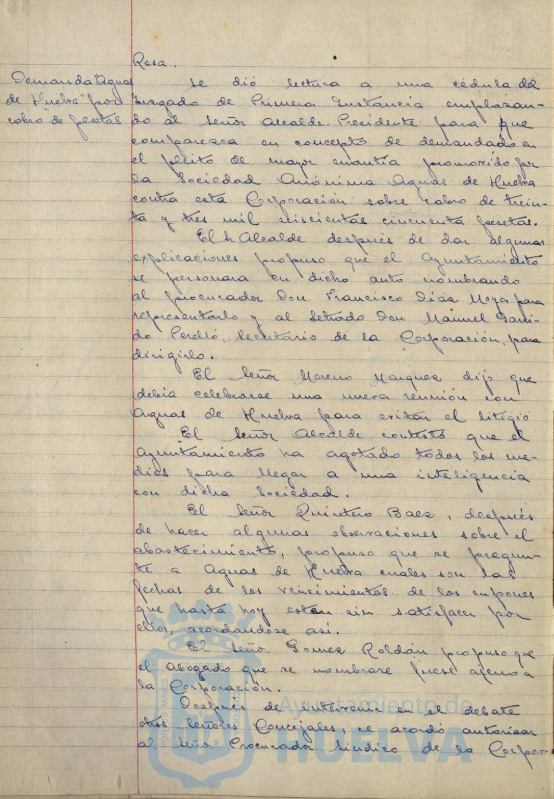 Rosa.
Demanda "Aguas
de Huelva" por
cobro de pesetas
Se dió lectura a una cédula del
Juzgado de Primera Instancia emplazan-
do al señor Alcalde-Presidente para que
comparezca en concepto de demandado en
el pleito de mayor cuantía promovido por
la Sociedad Anónima Aguas de Huelva
contra esta Corporación sobre cobro de trein-
ta y tres mil seiscientas cincuenta pesetas.
El Sr Alcalde después de dar algunas
explicaciones propuso que el Ayuntamiento
se personara en dicho auto nombrando
al procurador Don Francisco Díaz Moya para
representarlo y al letrado Don Manuel Garri-
do Perelló, Secretario de la Corporación, para
dirigirlo.
El Señor Moreno Marquez dijo que
debia celebrarse una nueva reunión con
Aguas de Huelva para evitar el litigio
El Señor Alcalde contestó que el
Ayuntamiento ha agotado todos los me-
dios para llegar a una inteligencia
con dicha Sociedad.
El Señor Quintero Baez, después
de hacer algunas observaciones sobre el
abastecimiento, propuso que se pregun-
te a Aguas de Huelva cuales son las
fechas de los vencimientos de los cupones
que hasta hoy estan sin satisfacer por
ellos, acordandose así.
El Señor Gomez Roldán propuso que
el abogado que se nombrare fuese ajeno a
la Corporación.
Después de intervenir en el debate
otros Señores Concejales, se acordó autorizar
al Señor Procurador Síndico de la Corpor-
Ayuntamiento de
HUELVA